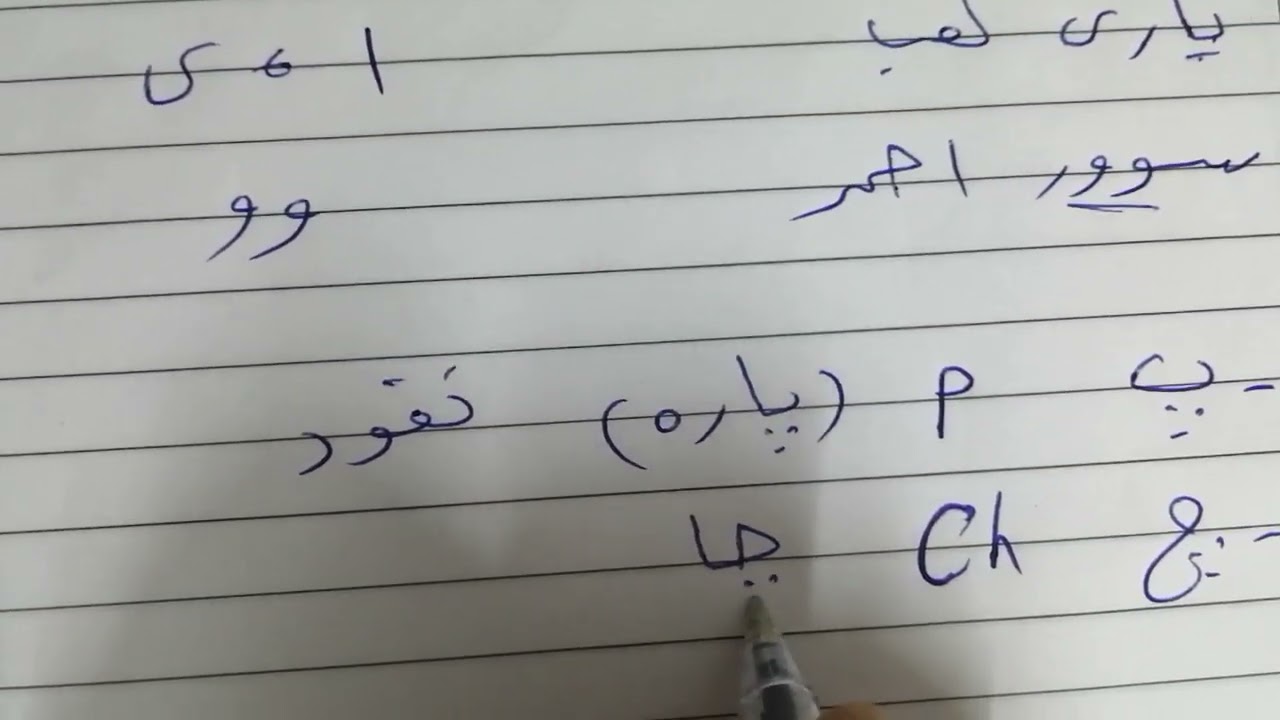 یاری لعب ا ، ی
سوور احمر وو
- پ P (پاره) نقود
- چ Ch چا